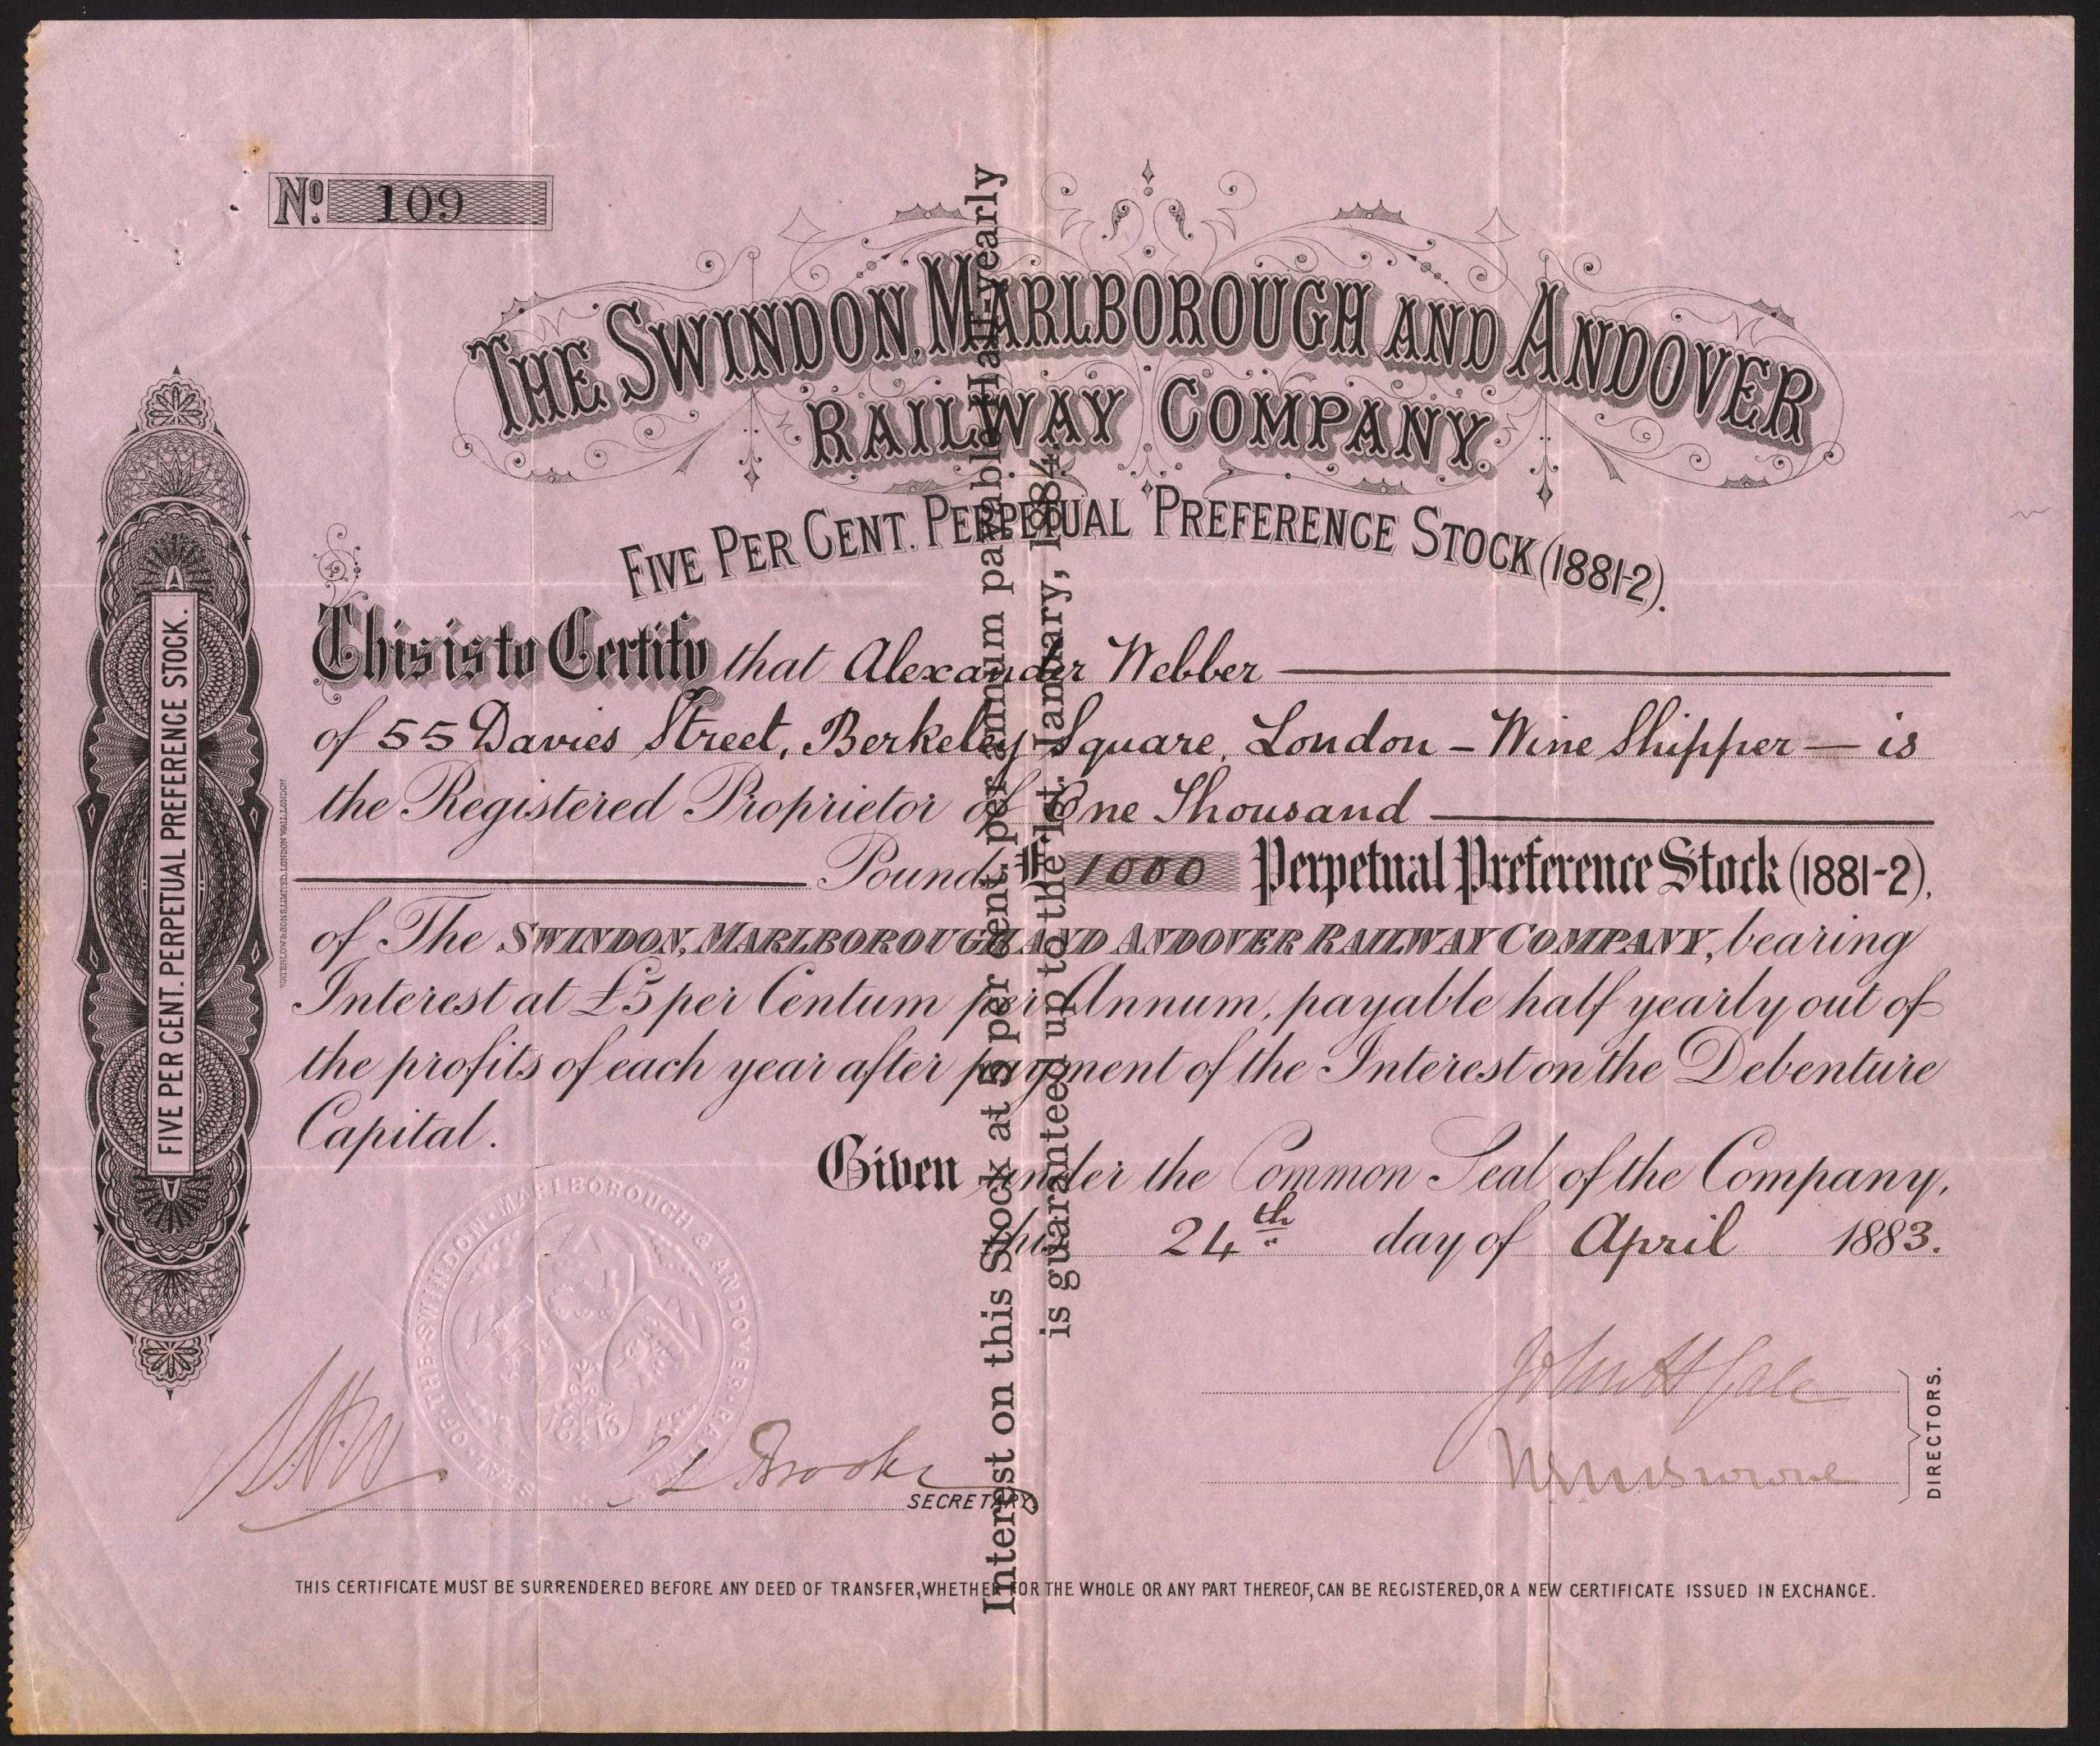 No. 109
THE SWINDON, MARLBOROUGH AND ANDOVER
RAILWAY COMPANY.
FIVE PER CENT. PERPETUAL PREFERENCE STOCK (1881-2).
This is to Certify that Alexander Webber
of 55 Davies Street, Berkeley Square, London - Wine Shipper - is
the Registered Proprietor of One Thousand
Pounds £ 1000 Perpetual Preference Stock (1881-2),
of The SWINDON, MARLBOROUGH AND ANDOVER RAILWAY COMPANY, bearing
Interest at £5 per Centum per Annum, payable half yearly out of
the profits of each year after payment of the Interest on the Debenture
Capital.
Given under the Common Seal of the Company,
this 24th day of April 1883.
SECRETARY
DIRECTORS.
THIS CERTIFICATE MUST BE SURRENDERED BEFORE ANY DEED OF TRANSFER, WHETHER FOR THE WHOLE OR ANY PART THEREOF, CAN BE REGISTERED, OR A NEW CERTIFICATE ISSUED IN EXCHANGE.
Interest on this Stock at 5 per cent. per annum payable Half-yearly
is guaranteed up to the 1st. January, 1884.
FIVE PER CENT. PERPETUAL PREFERENCE STOCK.
WATERLOW & SONS LIMITED, LONDON WALL, LONDON
SEAL OF THE SWINDON MARLBOROUGH & ANDOVER
1873